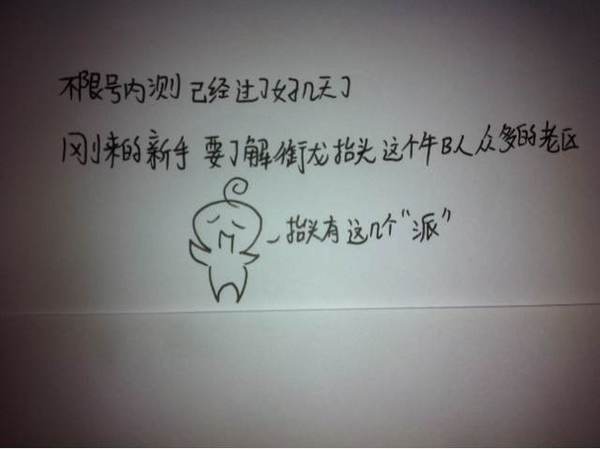 不限号内测 已经过了好几天了
刚来的新手 要了解衔龙抬头 这个牛B人众多的老区
抬头有这几个"派"